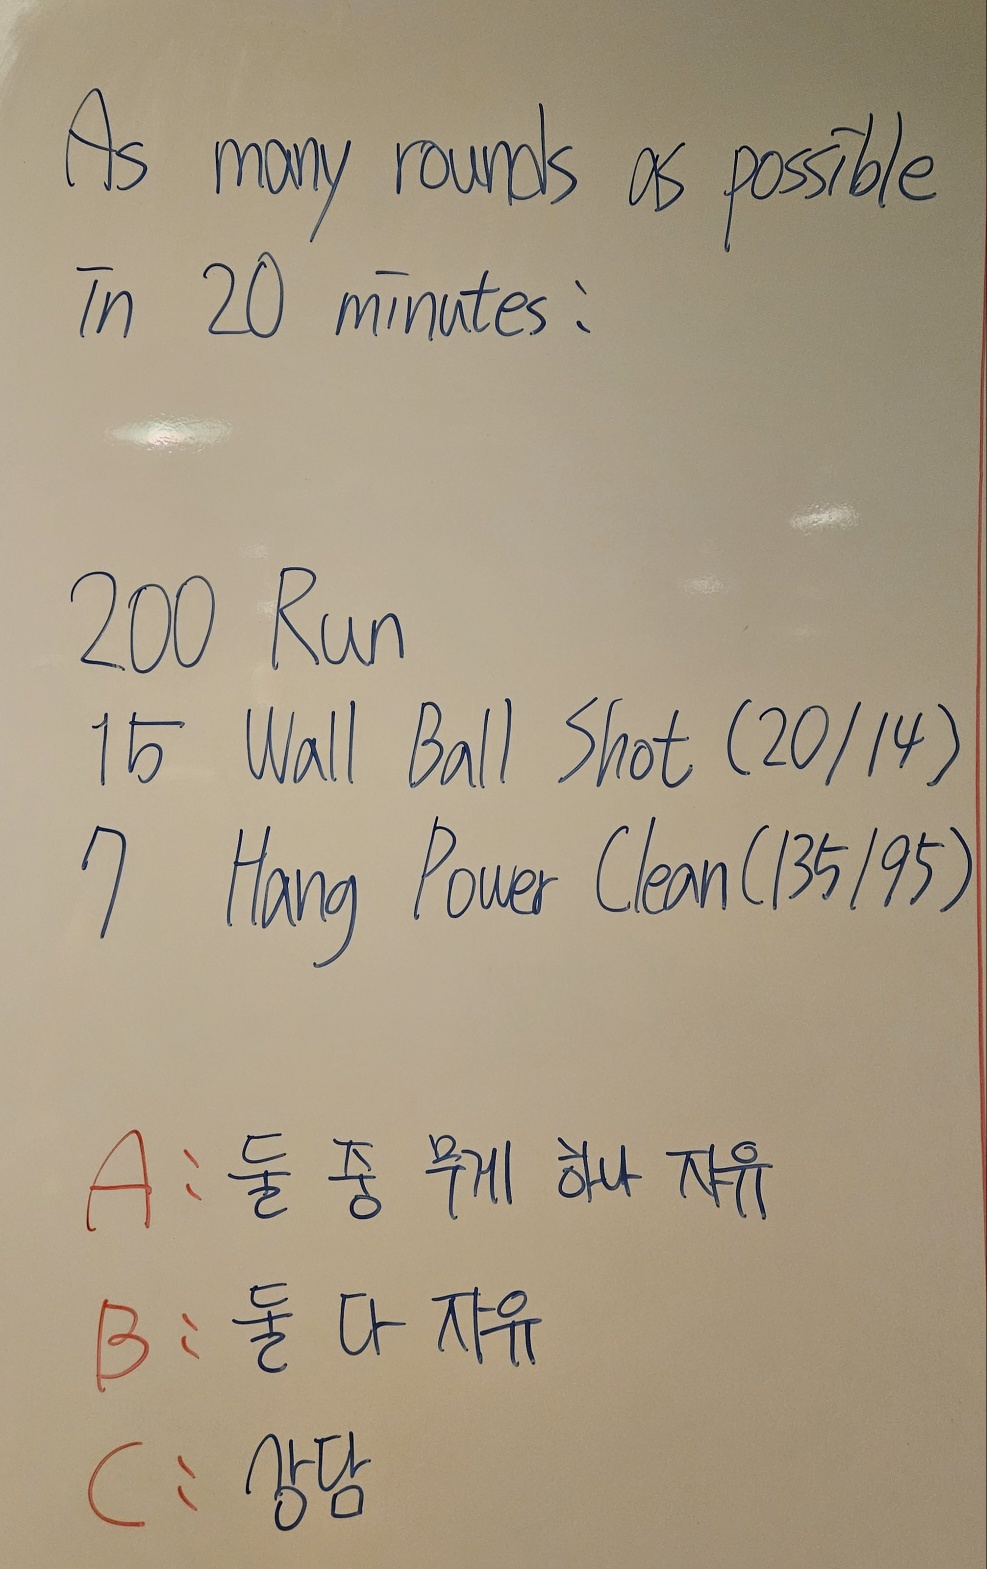 As many rounds as possible
in 20 minutes:
200 Run
15 Wall Ball Shot (20/14)
7 Hang Power Clean (135/95)
A: 둘 중 무게 하나 자유
B: 둘 다 자유
C: 상담